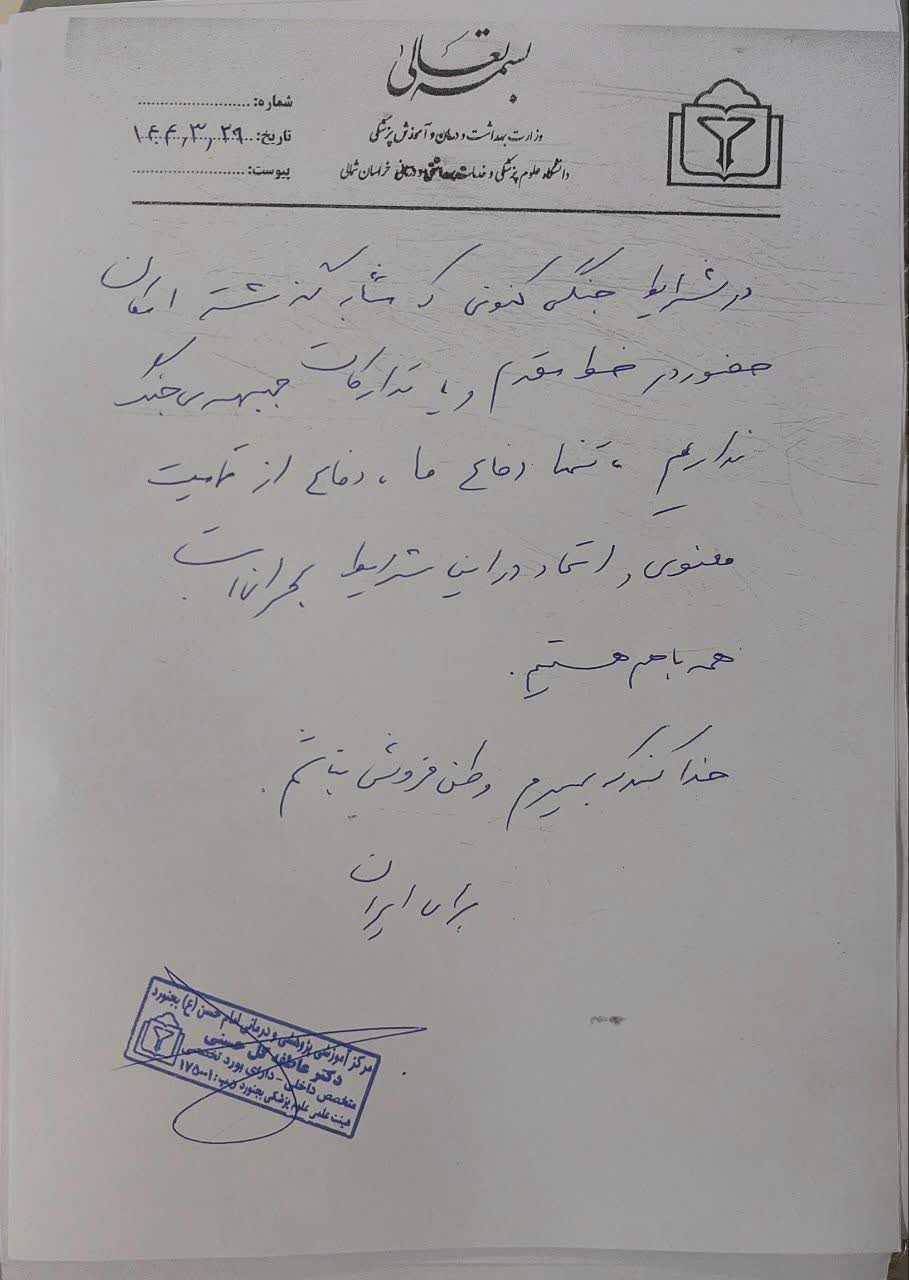 بسمه تعالی
وزارت بهداشت و درمان و آموزش پزشکی
دانشگاه علوم پزشکی و خدمات بهداشتی و درمانی خراسان شمالی
شماره: ........................
تاریخ: ۱۴۰۴,۳,۲۹
پیوست: ........................
در شرایط جنگی کنونی که مشابه گذشته امکان
حضور در خط مقدم و یا تدارکات جبهه‌ی جنگ
نداریم ، تنها دفاع ما ، دفاع از تمامیت
معنوی و اتحاد در این شرایط بحرانی است
همه با هم هستیم .
خدا کند که بمیرم وطن فروش نباشم .
برای ایران
مرکز آموزشی پژوهشی و درمانی امام حسن (ع) بجنورد
دکتر عاطفه گل حسینی
متخصص داخلی - دارای بورد تخصصی
هیئت علمی علوم پزشکی بجنورد